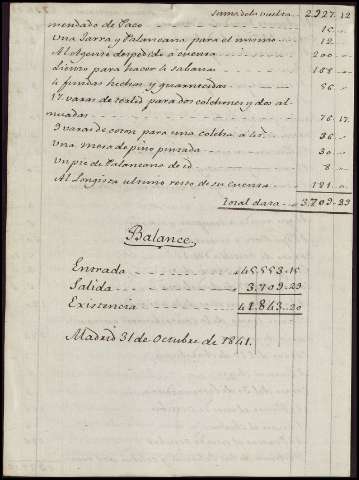 Suma de la vuelta 2.927.12
mendado de Paco 15 "
Una Jarra y Palancana para el mismo 12
Al Algente despedido a cuenta 200
lienzo para hacer 4 sabanas 168
4 fundas hechas y guarnecidas 56
17 varas de para dos colchones y dos al
muadas 76.17
9 varas de para una colcha a 4 36
Una mesa de pino pintada 30
Un pie de Palancana de id 8
Al ultimo resto de su cuenta 181
Total data 3,709.29
Balance
Entrada 45,553.15
Salida 3,709.29
Existencia 41,843.20
Madrid 31 de Octubre de 1841.